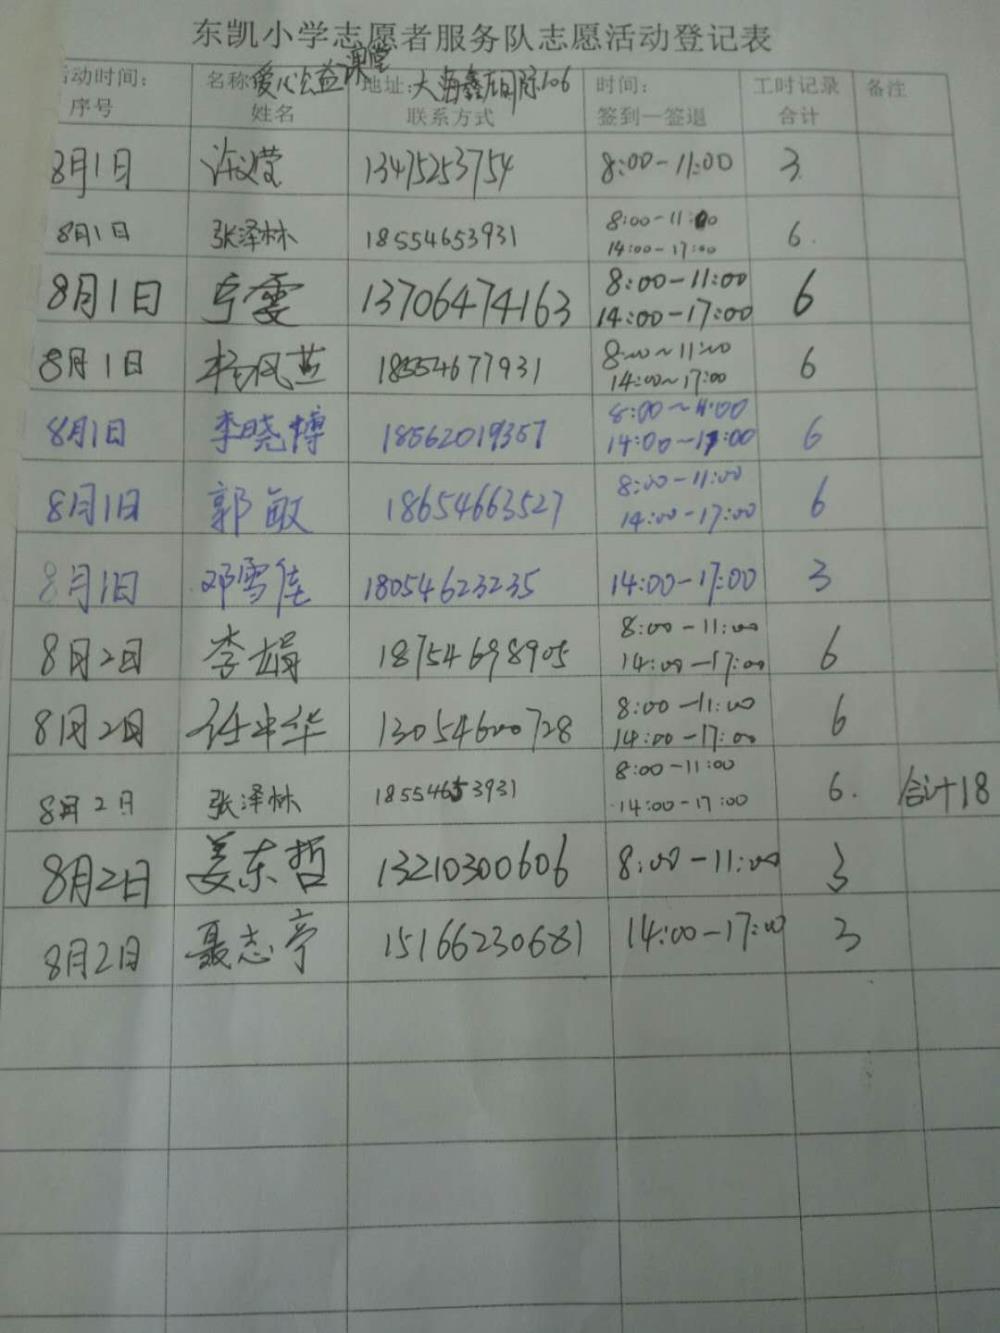 东凯小学志愿者服务队志愿活动登记表
活动时间: 名称 爱心公益课堂 地址: 大海鑫国际106 时间: 工时记录 备注
序号 姓名 联系方式 签到一签退 合计
8月1日 13475253754 8:00-11:00 3
8月1日 张泽林 18554653931 8:00-11:00 6.
14:00-17:00
8月1日 13706474163 8:00-11:00 6
14:00-17:00
8月1日 杨风燕 18554677931 8:00~11:00 6
14:00~17:00
8月1日 李晓博 18562019357 8:00~11:00 6
14:00-17:00
8月1日 郭敏 18654663527 8:00-11:00 6
14:00-17:00
8月1日 邓雪佳 18054623235 14:00-17:00 3
8月2日 李娟 18754698905 8:00-11:00 6
14:00-17:00
8月2日 13054600728 8:00-11:00 6
14:00-17:00
8月2日 张泽林 18554653931 8:00-11:00 6. 合计18
14:00-17:00
8月2日 姜东哲 13210300606 8:00-11:00 3
8月2日 聂志亭 15166230681 14:00-17:00 3